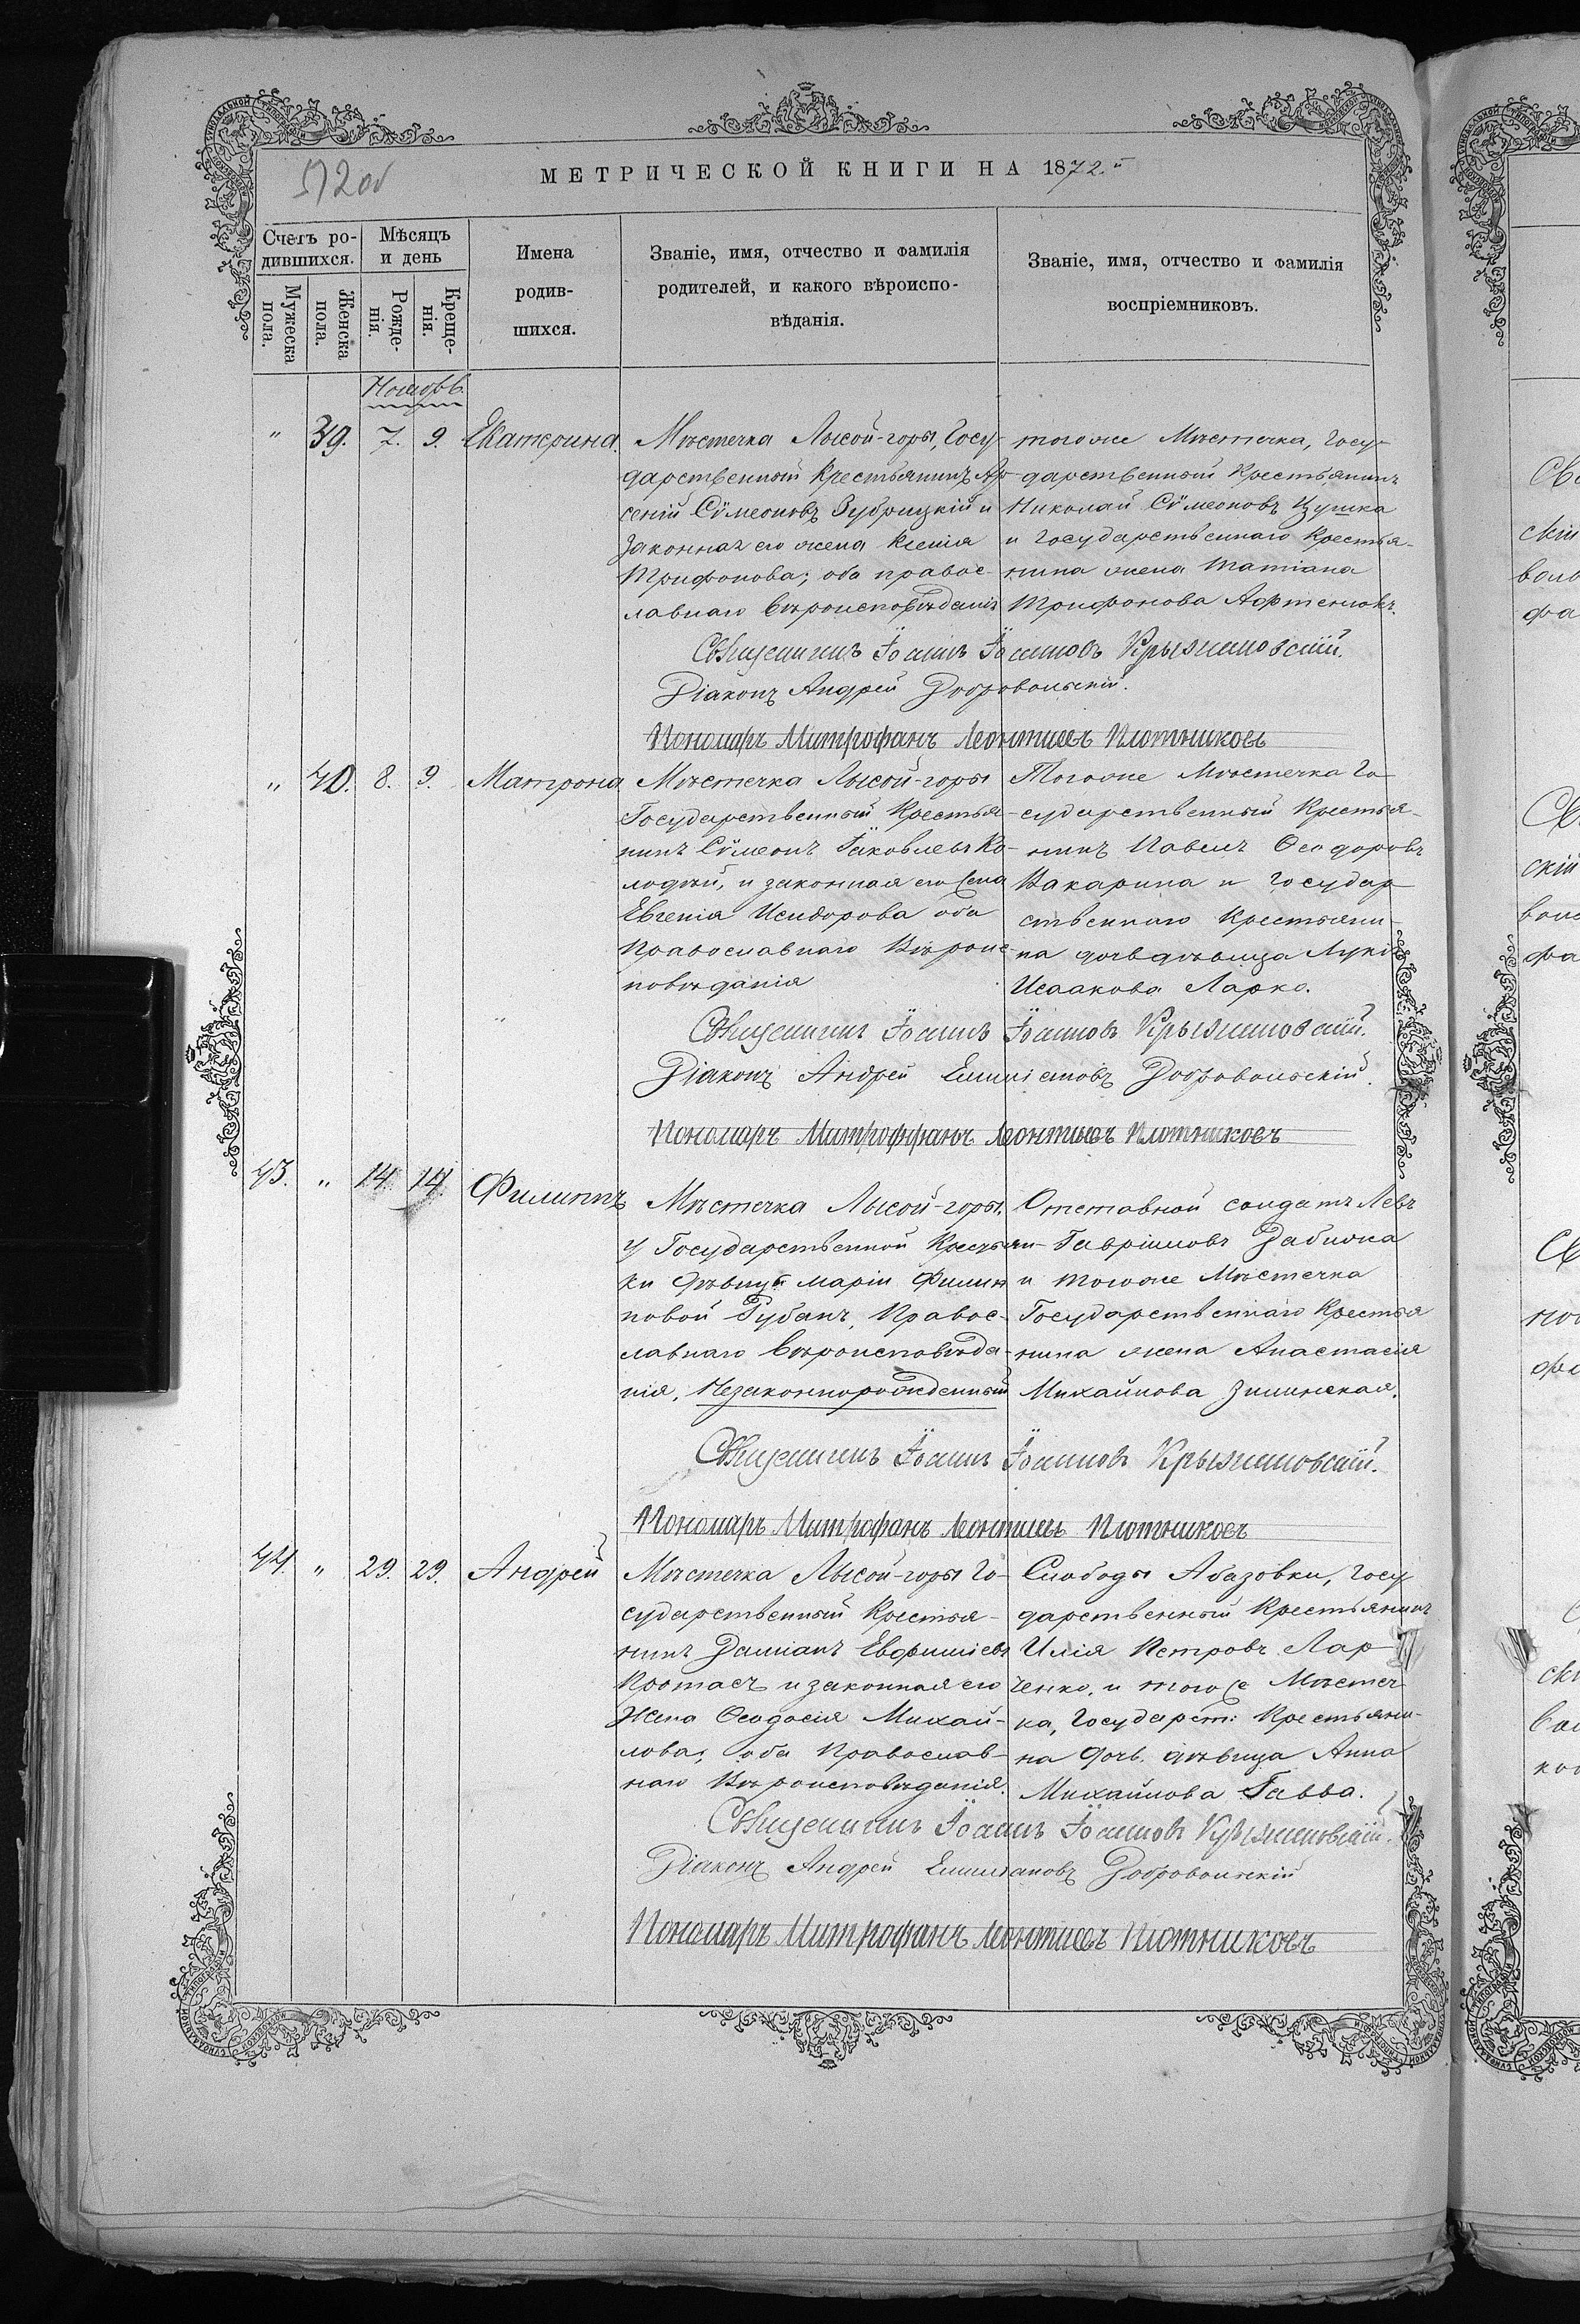 572об
МЕТРИЧЕСКОЙ КНИГИ НА 1872.й
Счетъ ро-
дившихся.
Мѣсяцъ
и день
Мужеска
пола.
Женска
пола.
Рожде-
нія.
Креще-
нія.
Имена
родив-
шихся.
Званіе, имя, отчество и фамилія
родителей, и какого вѣроиспо-
вѣданія.
Званіе, имя, отчество и фамилія
воспріемниковъ.
" 39. 7. 9. Екатерина.
Мѣстечка Лысой-горы, Госу-
дарственный Крестьянинъ Ар-
сеній Сѵмеоновъ Зубрицкій и
Законная его жена Ксенія
Трифонова; оба правос-
лавнаго вѣроисповѣданія
тогоже Мѣстечка, Госу-
дарственный Крестьянинъ
Николай Сѵмеоновъ
и Государственнаго Крестья-
нина жена Татіана
Трифонова
Священникъ Іоаннъ Іоанновъ Крыжановскій.
Діаконъ Андрей Добровольскій.
Пономарь Митрофанъ Леонтіевъ Плотниковъ
" 40. 8. 9. Матрона
Мѣстечка Лысой-горы
Государственный Крестья-
нинъ Сѵмеонъ Іаковлевъ Ко-
лодѣй, и законная его жена
Евгенія Исидорова оба
Православнаго Вѣроис-
повѣданія
Тогоже Мѣстечка Го-
сударственный Крестья-
нинъ Павелъ Ѳеодоровъ
Какарина и Государ
ственнаго Крестьяни-
на дочь дѣвица
Исаакова Ларко.
Священникъ Іоаннъ Іоанновъ Крыжановскій.
Діаконъ Андрей Емиліановъ Добровольскій.
Пономарь Митрофанъ Леонтіевъ Плотниковъ
43. " 14. 14. Филиппъ
Мѣстечка Лысой-горы,
У Государственной Крестьян-
ки дѣвицы Маріи Филип
повой Рубанъ, Правос-
лавнаго вѣроисповѣда-
нія, Незаконнорожденный
Отставной солдатъ Левъ
Гавріиловъ
и тогоже Мѣстечка
Государственнаго Крестья
нина жена Анастасія
Михайлова Зилинская.
Священникъ Іоаннъ Іоанновъ Крыжановскій.
Пономарь Митрофанъ Леонтіевъ Плотниковъ
44. " 29. 29. Андрей
Мѣстечка Лысой-горы Го-
сударственный Крестья-
нинъ Даміанъ Евфиміевъ
Протасъ и законная его
Жена Ѳеодосія Михай-
лова; оба Православ-
наго Вѣроисповѣданія.
Слободы Абазовки, Госу
дарственный Крестьянинъ
Илія Петровъ Лар
ченко, и того же Мѣстеч
ка, Государст: Крестьяни-
на дочь дѣвица Анна
Михайлова Гавва.
Священникъ Іоаннъ Іоанновъ Крыжановскій.
Діаконъ Андрей Емиліановъ Добровольскій
Пономарь Митрофанъ Леонтіевъ Плотниковъ